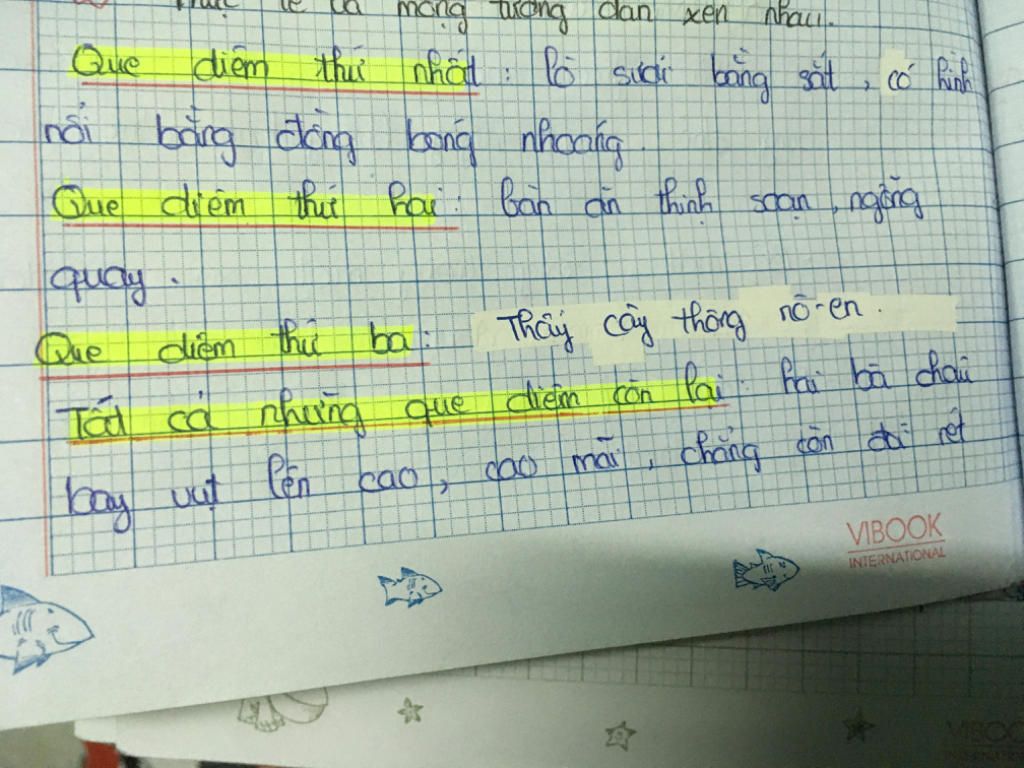 tế là mộng tưởng đan xen nhau.
Que diêm thứ nhất : lò sưởi bằng sắt , có hình
nổi bằng đồng bóng nhoáng
Que diêm thứ hai : bàn ăn thịnh soạn , ngỗng
quay .
Que diêm thứ ba : Thấy cây thông nô-en .
Tất cả những que diêm còn lại : hai bà cháu
bay vụt lên cao , cao mãi , chẳng còn đói rét
VIBOOK
INTERNATIONAL